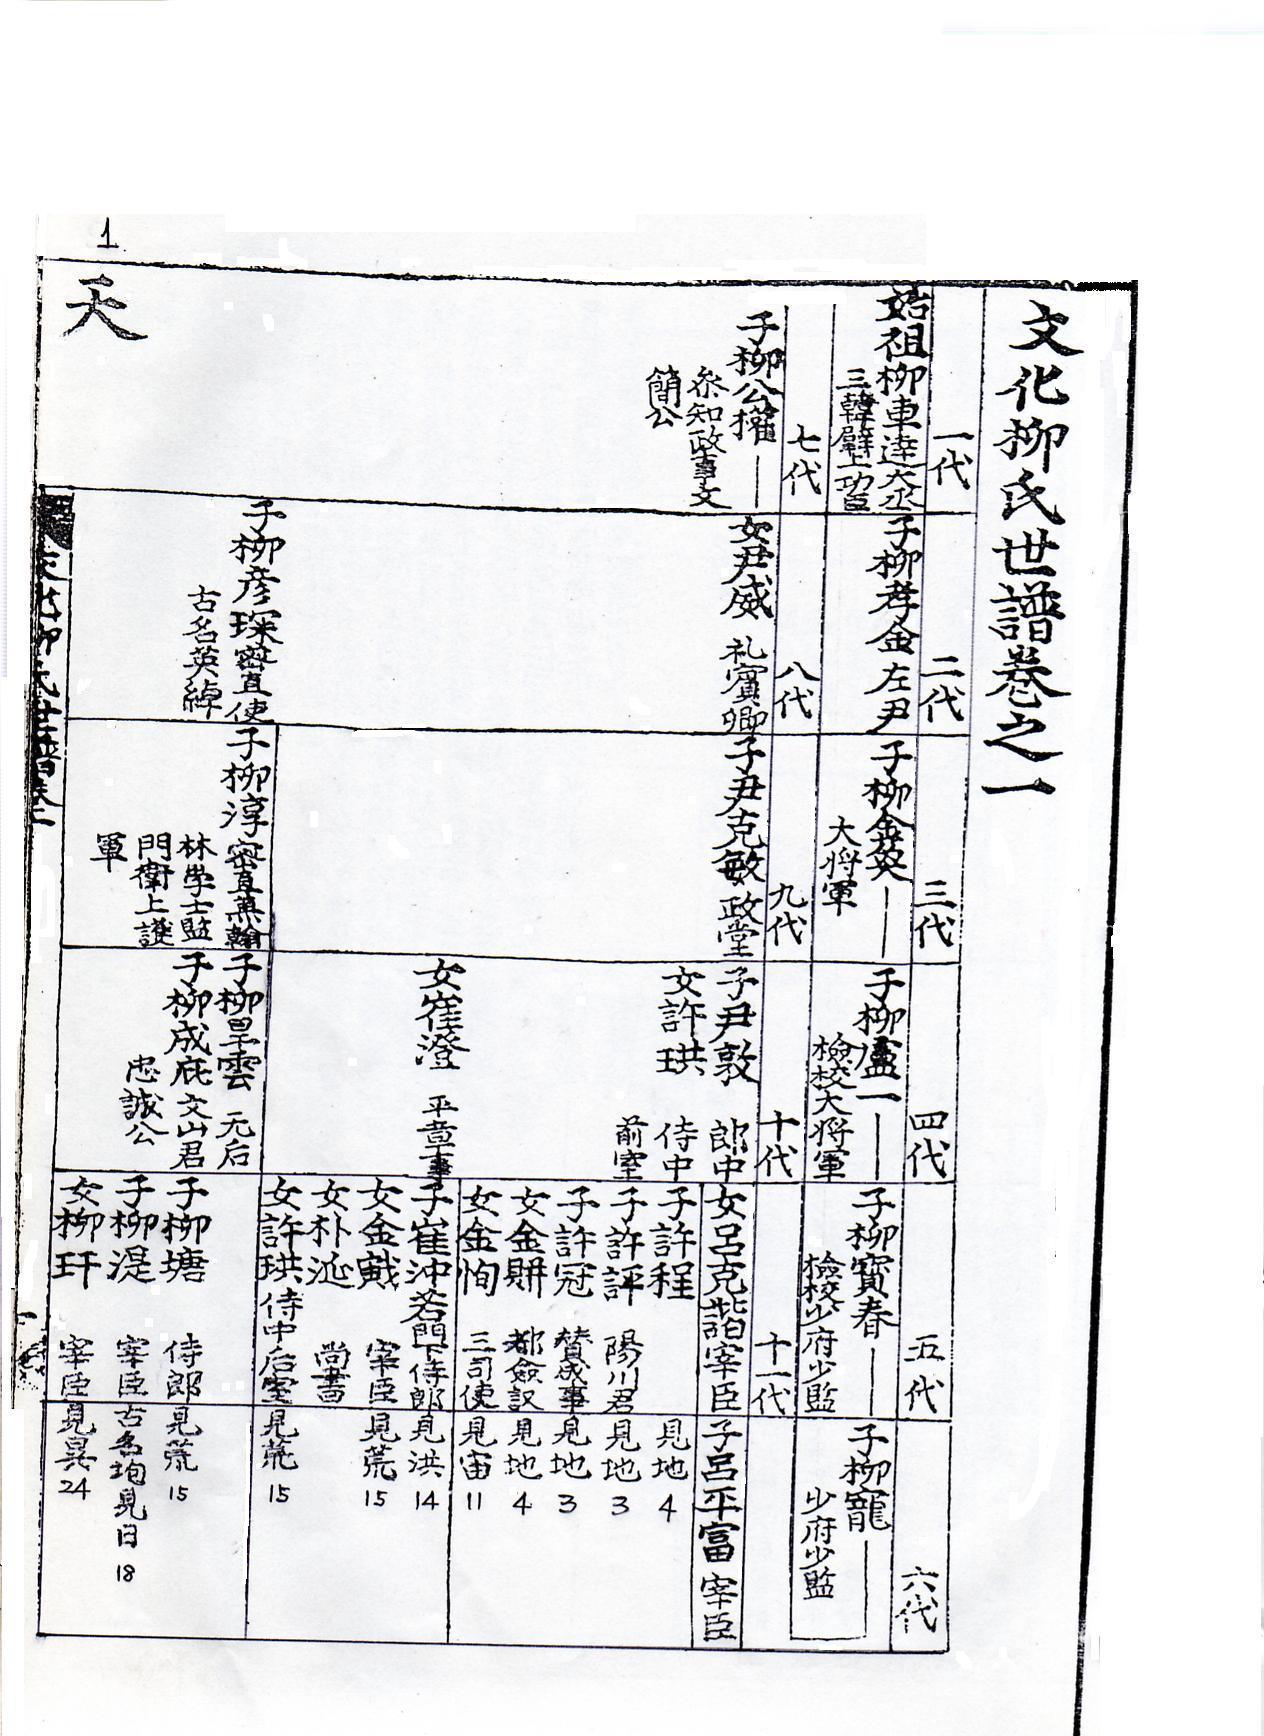 文化柳氏世譜卷之一
一代
始祖柳車達大丞
三韓壁上功臣
二代
子柳孝金左尹
三代
子柳金奐
大將軍
四代
子柳盧一
檢校大將軍
五代
子柳寶春
檢校少府少監
六代
子柳寵
少府少監
七代
子柳公權
叅知政事文
簡公
八代
女尹威 礼賓卿
九代
子尹克敏 政堂
十代
子尹敦 郎中
女許珙 侍中
前室
女崔澄 平章事
十一代
女呂克諧宰臣
子呂平富 宰臣
子許程 見地 4
子許評 陽川君 見地 3
子許冠 賛成事 見地 3
女金賆 都僉議 見地 4
女金恂 三司使 見宙 11
子崔沖若門下侍郎 見洪 14
女金戴 宰臣 見荒 15
女朴涎 尚書
女許珙侍中后室 見荒 15
子柳彦琛密直使
古名英綽
子柳淳密直
林學士監
門衛上護
軍
子柳雲 无后
子柳成庇文山君
忠誠公
子柳塘 侍郎 見荒 15
子柳湜 宰臣古名珣見日 18
女柳玕 宰臣見昃 24
天
1
文化柳氏世譜卷之一